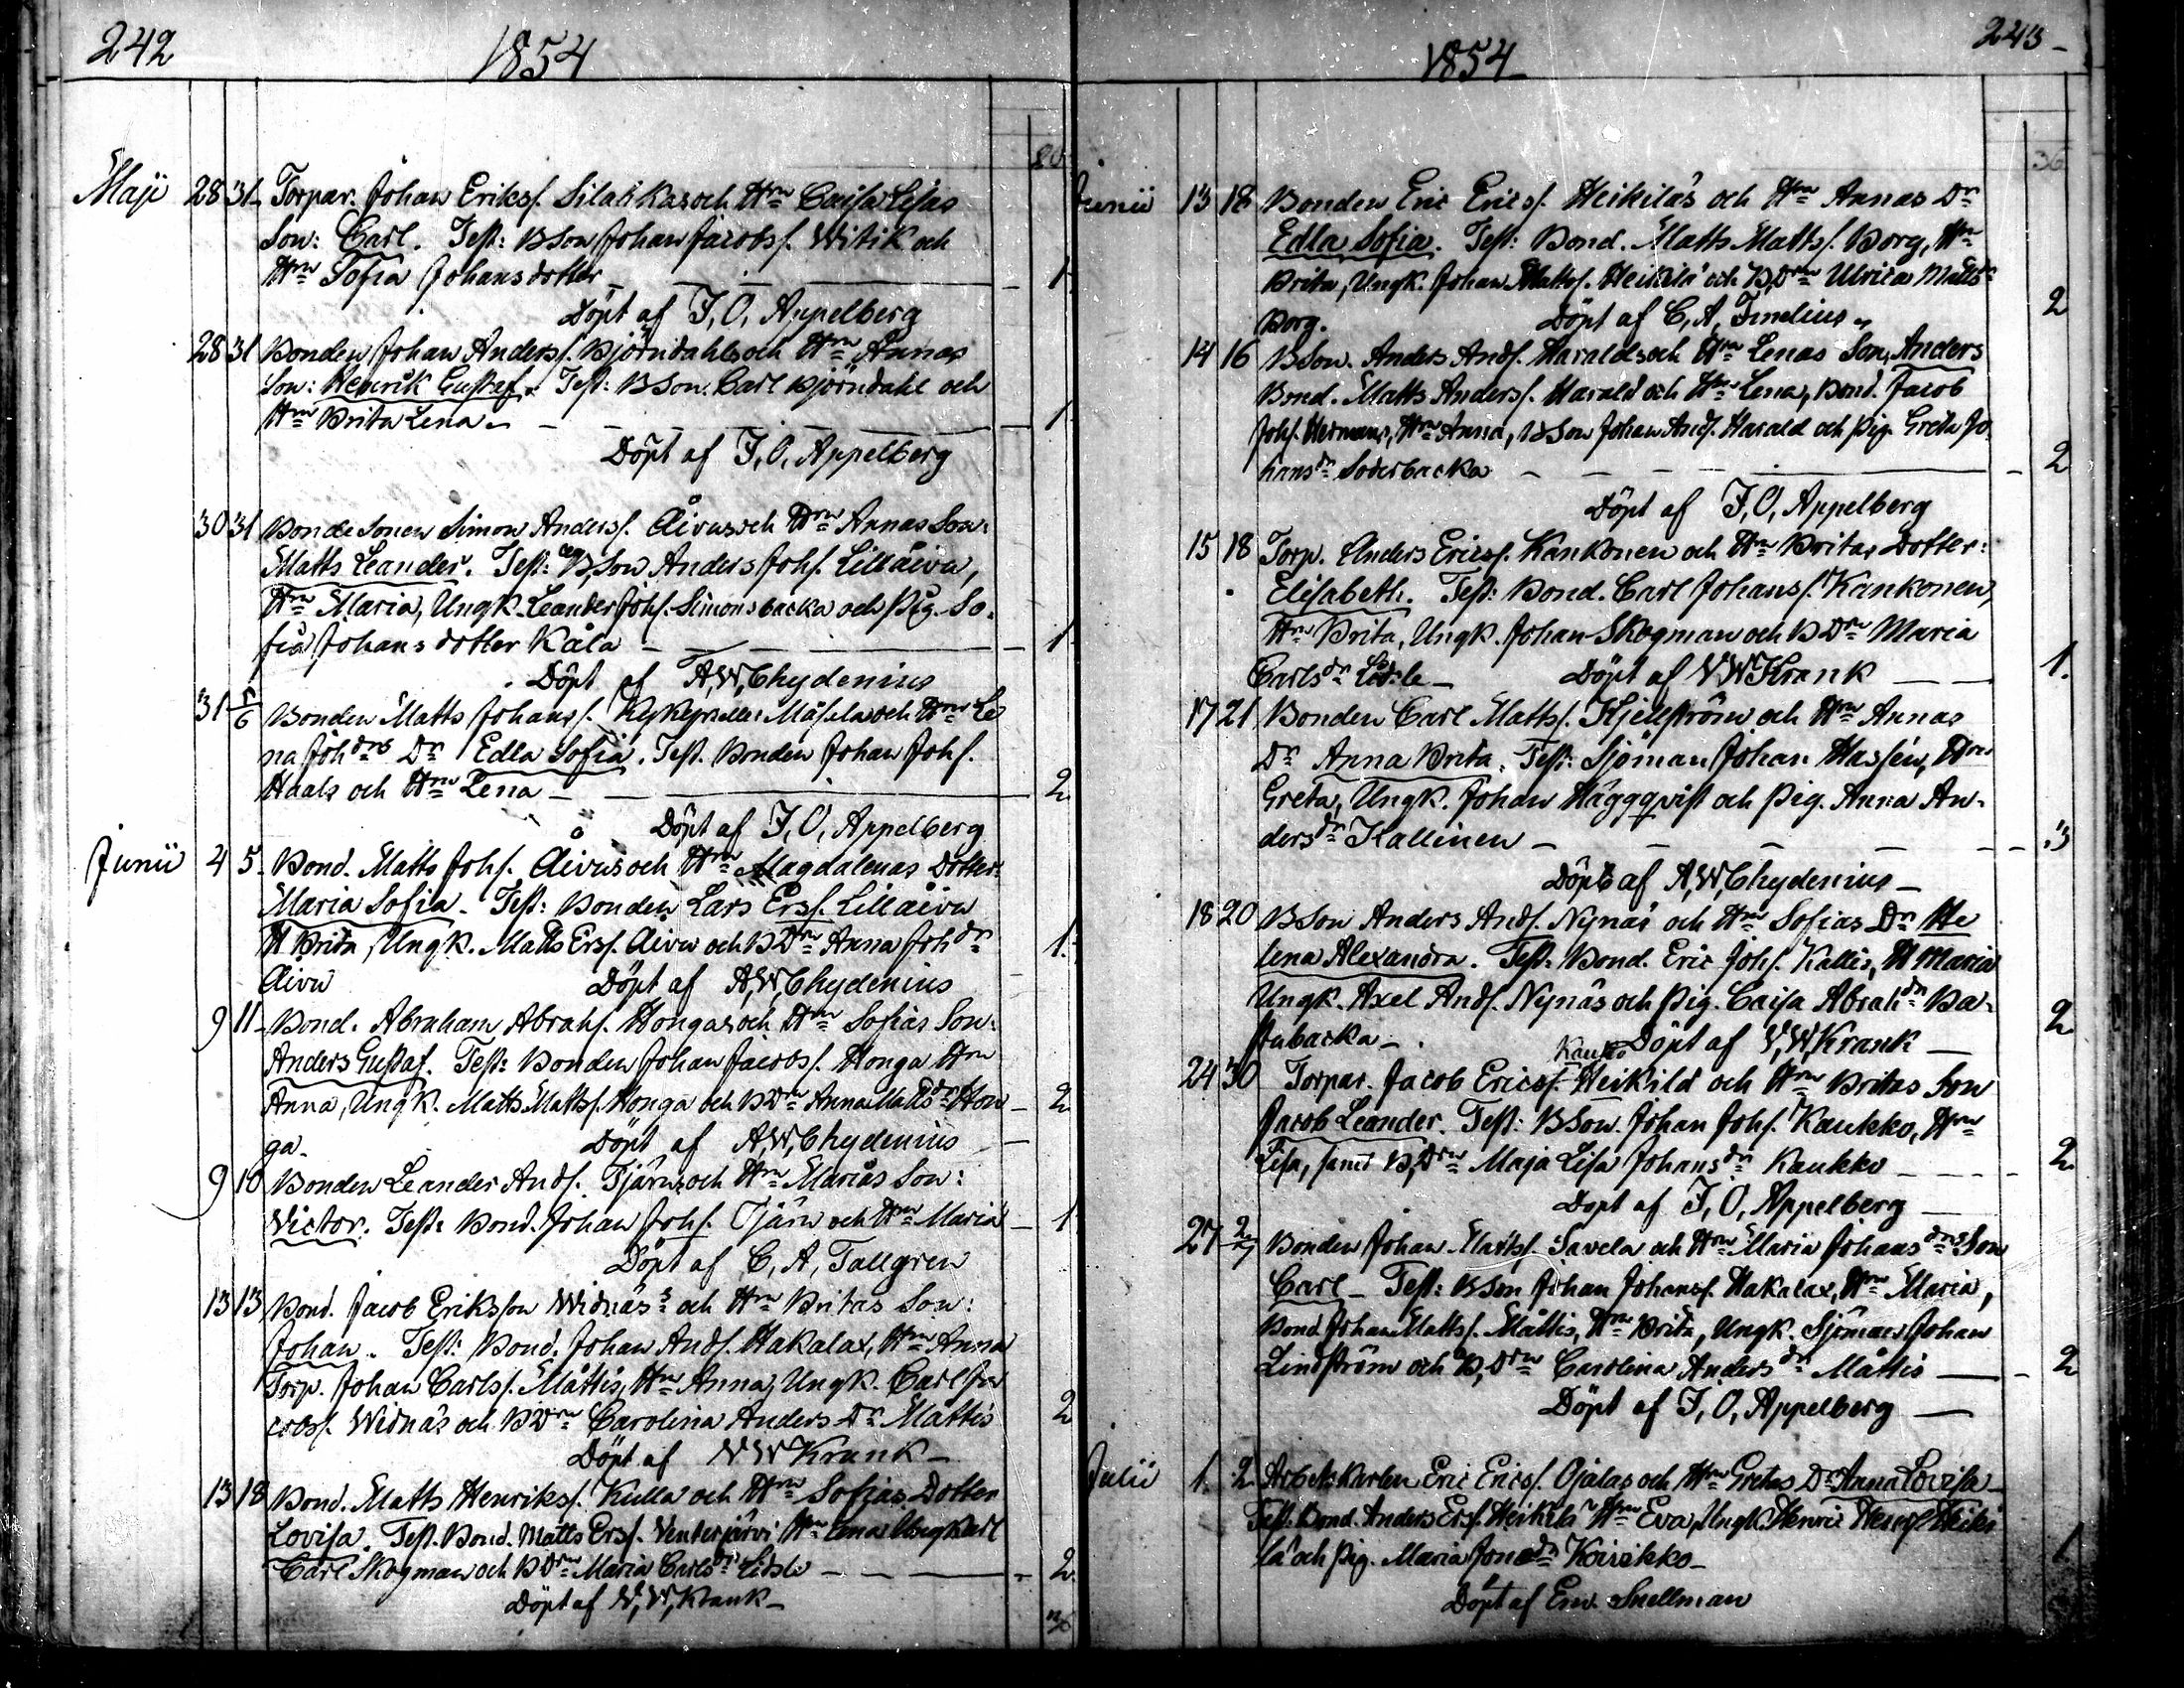 242
1854
Maji 28 31 Torpar. Johan Eriks. Silalikas och Hu Caisa Lisas
Son: Carl. Test: BSon Johan Jacobs. Witik och
Hu Sofia Johansdotter 1
Döpt af J, O, Appelberg
28 31 Bonden Johan Anders. Björndahls och Hu Annas
Son: Henrik Gustaf. Test: BSon. Carl Björndahl och
Hu Brita Lena 1
Döpt af J, O, Appelberg
30 31 Bonde Sonen Simon Anders. Åivus och Hu Annas Son:
Matts Leander. Test: BSon Anders Johs. Lillåivu,
Hu Maria, Ungk. Leander Johs. Simonsbacka och Pig. So-
fia Johansdotter Kåla 1
Döpt af A, W, Chydenius
31 5/6 Bonden Matts Johans. Måsala och Hu Le
na Joh drs Dr Edla Sofia. Test. Bonden Johan Johs.
Haals och Hu Lena 2
Döpt af J, O, Appelberg
Junii 4 5 Bond. Matts Johs. Åivus och Hu Magdalenas Dotter:
Maria Sofia. Test: Bonden Lars Ers. Lillåivu
H Brita, Ungk. Matts Ers. Åivu och BDrn Anna Joh dr 1.
Åivu Döpt af A, W, Chydenius
9 11 Bond. Abraham Abrahs. Hongas och Hu Sofias Son:
Anders Gustaf. Test: Bonden Johan Jacobs. Honga Hu
Anna, Ungk. Matts Matts. Honga och BDrn Anna Matts dr Hon 2
ga. Döpt af A, W, Chydenius
9 10 Bonden Leander Ands. Tjärus och Hu Marias Son:
Victor. Test: Bond. Johan Johs. Tjäru och Hu Maria 1
Döpt af C, A, Tallgren
13 13 Bond. Jacob Eriksson Widnäs s och Hu Britas Son:
Johan. Test: Bond. Johan Ands. Hakalax, Hu Anna
Torp. Johan Carls. Måttis, Hu Anna, Ungk. Carl Ja
cobs. Widnäs och BDrn Carolina Anders Dr Måttis 2
Döpt af V W Krank
13 18 Bond. Matts Henriks. Kulla och Hu Sofias Dotter
Lovisa. Test. Bond. Matts Ers. Venterjärvi Hu Lena Ungkarl
Carl Skogman och BDrn Maria Carls dr Lidsle 2
Döpt af V, W, Krank
243
1854
36
Junii 13 18 Bonden Eric Erics. Heikiläs och Hu Annas Dr
Edla Sofia. Test: Bond. Matts Matts. Borg, Hu
Brita, Ungk. Johan Matts. Heikilä och B,Drn Ulrica Matts dr
Borg. Döpt af C, A, 2
14 16 BSon. Anders Ands. Haralds och Hu Lenas Son, Anders
Bond. Matts Anders. Harald och Hu Lena, Bond. Jacob
Johs. Hermans, Hu Anna, BSon Johan Ands. Harald och Pig. Greta Jo
hans dr Söderbacka 2
Döpt af J, O, Appelberg
15 18 Torp. Anders Erics. Kankonen och Hu Britas Dotter:
Elisabeth. Test: Bond. Carl Johans. Kankonen,
Hu Brita, Ungk. Johan Skogman och BDrn Maria
Carls dr Lidsle Döpt af V W Krank 1.
17 21 Bonden Carl Matts. Kjellström och Hu Annas
Dr Anna Brita. Test: Sjöman Johan Hassén, Hu
Greta, Ungk. Johan Häggqvist och Pig. Anna An-
ders dr Kallinen 3
Döpt af A, W, Chydenius
18 20 BSon Anders Ands. Nynäs och Hu Sofias Dr He
lena Alexandra. Test: Bond. Eric Johs. Kallis, H Maria
Ungk. Axel Ands. Nynäs och Pig. Caisa Abrah dr Ba-
stubacka Döpt af V, W, Krank 2
Kaukko
24 30 Torpar. Jacob Erics. Heikilä och Hu Britas Son
Jacob Leander. Test: BSon. Johan Johs. Kaukko, Hu
Lisa, samt B,Drn Maja Lisa Johans dr Kaukko 2
Döpt af J, O, Appelberg
27 2/7 Bonden Johan Matts. Savela och Hu Maria Johans drs Son
Carl Test: BSon Johan Johans. Hakalax, Hu Maria,
Bond. Johan Matts. Måttis, Hu Brita, Ungk. Sjöman Johan
Lindström och B,Drn Carolina Anders dr Måttis 2
Döpt af J, O, Appelberg
Julii 1. 2 Arbetskarlen Eric Erics. Ojalas och Hu Gretas Dr Anna Lovisa
Test: Bond. Anders Ers. Heikilä Hu Eva, Ungk. Henric Heiki
lä och Pig. Maria Jonæ dr Koirikko 1
Döpt af Em. Snellman